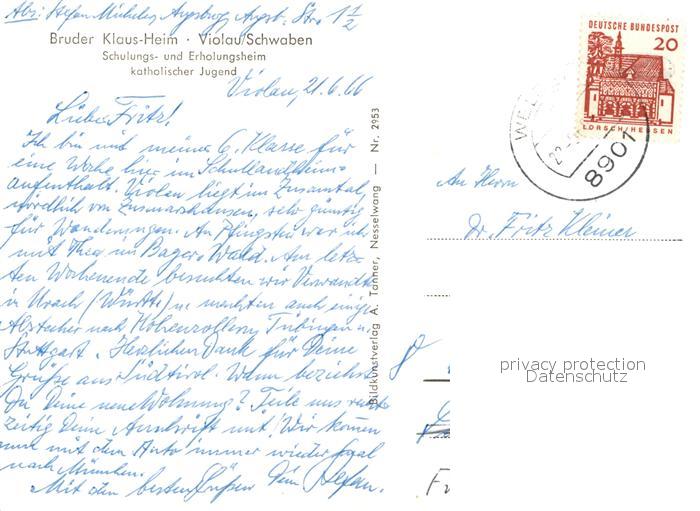 Abs: Stefan Micheler, Augsburg, Augsb. Str. 1 1/2
Bruder Klaus-Heim · Violau/Schwaben
Schulungs- und Erholungsheim
katholischer Jugend
Violau, 21.6.66
Lieber Fritz!
Ich bin mit meiner 6. Klasse für
eine Woche hier im Schullandheim-
aufenthalt. Violau liegt im Zusamtal,
nördlich von Zusmarshausen, sehr günstig
für Wanderungen. An Pfingsten war ich
mit Thea im Bayer. Wald. Am letz-
ten Wochenende besuchten wir Verwandte
in Urach (Württ.) u. machten auch einige
Abstecher nach Hohenzollern, Tübingen u.
Stuttgart. Herzlichen Dank für Deine
Grüße aus Südtirol. Wann beziehst
Du Deine neue Wohnung? Teile uns recht-
zeitig Deine Anschrift mit! Wir kommen
nun mit dem Auto immer wieder mal
nach München.
Mit den besten Grüßen Dein Stefan.
Bildkunstverlag A. Tanner, Nesselwang — Nr. 2953
DEUTSCHE BUNDESPOST
20
LORSCH/HESSEN
8901
An Herrn
Dr. Fritz Kleiner
privacy protection
Datenschutz